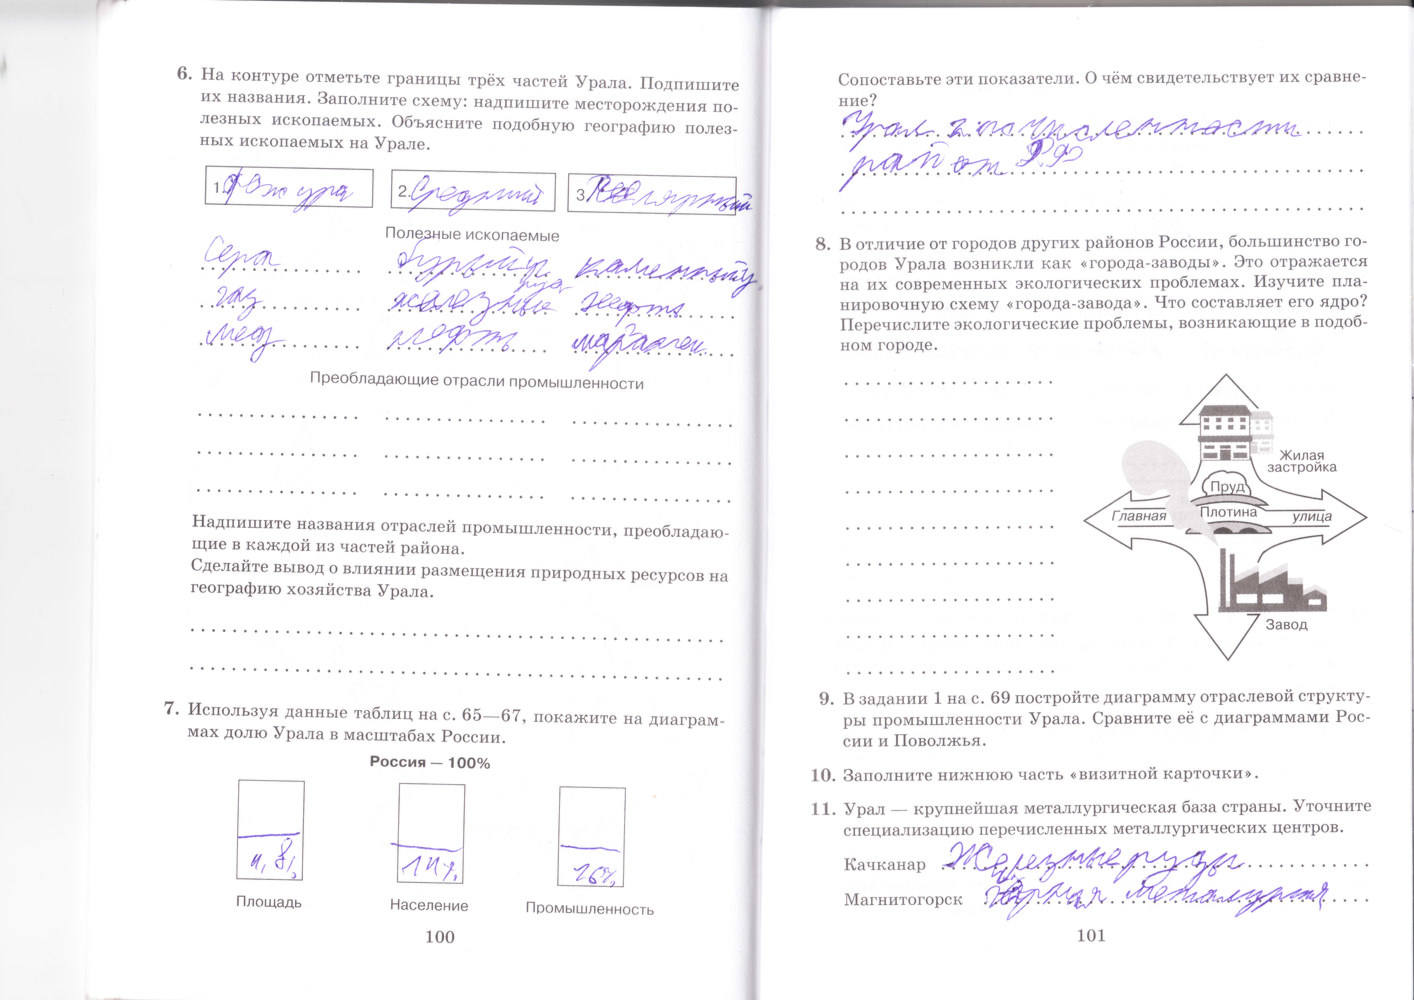 6. На контуре отметьте границы трёх частей Урала. Подпишите
их названия. Заполните схему: надпишите месторождения по-
лезных ископаемых. Объясните подобную географию полез-
ных ископаемых на Урале.
1. 2. Средний 3.
Полезные ископаемые
Сера бурый у каменный у
газ железные руд нефть
мед нефть марганец
Преобладающие отрасли промышленности
Надпишите названия отраслей промышленности, преобладаю-
щие в каждой из частей района.
Сделайте вывод о влиянии размещения природных ресурсов на
географию хозяйства Урала.
7. Используя данные таблиц на с. 65—67, покажите на диаграм-
мах долю Урала в масштабах России.
Россия — 100%
4,8% 14% 16%
Площадь Население Промышленность
100
Сопоставьте эти показатели. О чём свидетельствует их сравне-
ние?
Урал 2 по численности
район РФ
8. В отличие от городов других районов России, большинство го-
родов Урала возникли как «города-заводы». Это отражается
на их современных экологических проблемах. Изучите пла-
нировочную схему «города-завода». Что составляет его ядро?
Перечислите экологические проблемы, возникающие в подоб-
ном городе.
Жилая
застройка
Пруд
Главная Плотина улица
Завод
9. В задании 1 на с. 69 постройте диаграмму отраслевой структу-
ры промышленности Урала. Сравните её с диаграммами Рос-
сии и Поволжья.
10. Заполните нижнюю часть «визитной карточки».
11. Урал — крупнейшая металлургическая база страны. Уточните
специализацию перечисленных металлургических центров.
Качканар Железные руды
Магнитогорск Чёрная металургия
101